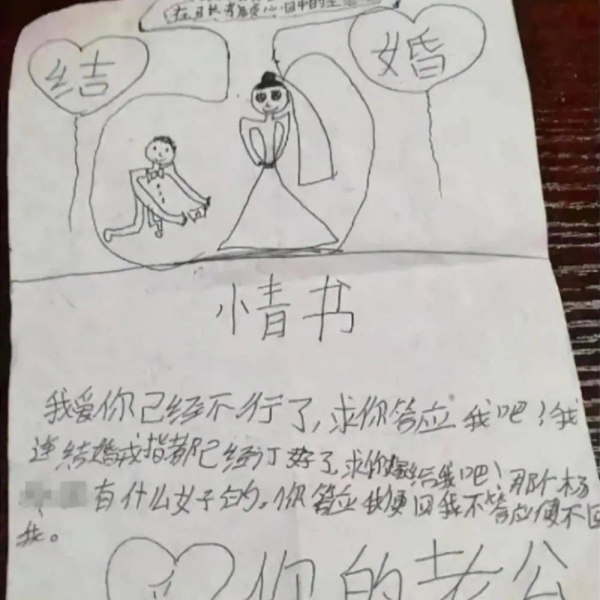 心目中的
结 婚
情书
我爱你已经不行了,求你答应我吧!我
连结婚戒指都已经订好了,求你嫁给我吧!那个杨
有什么好的。你答应我便回我不答应便不回
我。
你的老公